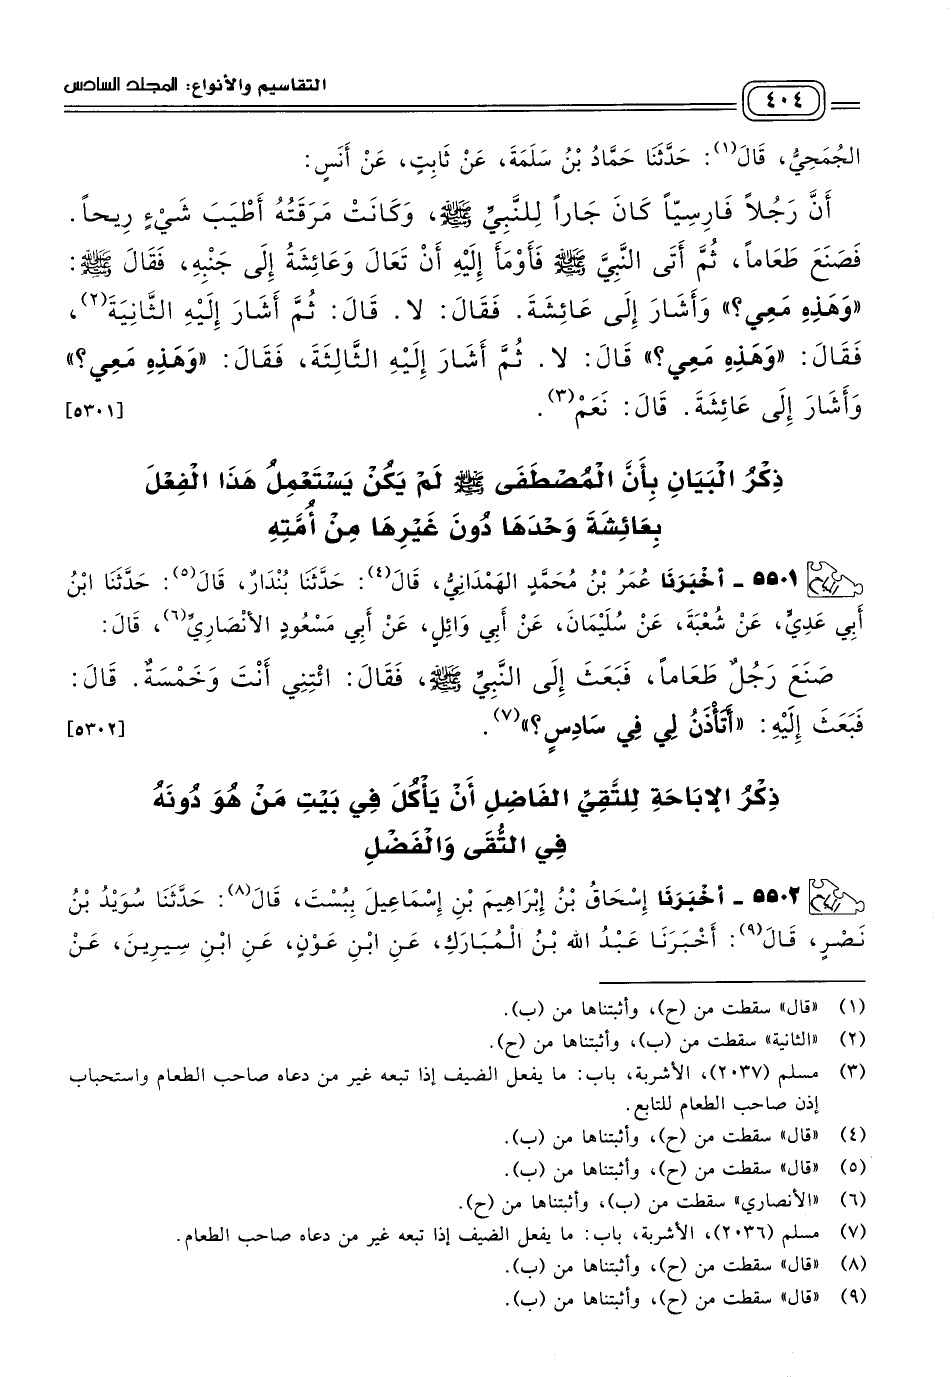 التقاسيم والأنواع: المجلد السادس
٤٠٤
الجُمَحِيُّ، قَالَ(١): حَدَّثَنَا حَمَّادُ بْنُ سَلَمَةَ، عَنْ ثَابِتٍ، عَنْ أَنَسٍ:
أَنَّ رَجُلاً فَارِسِيّاً كَانَ جَاراً لِلنَّبِيِّ ﷺ، وَكَانَتْ مَرَقَتُهُ أَطْيَبَ شَيْءٍ رِيحاً.
فَصَنَعَ طَعَاماً، ثُمَّ أَتَى النَّبِيَّ ﷺ فَأَوْمَأَ إِلَيْهِ أَنْ تَعَالَ وَعَائِشَةُ إِلَى جَنْبِهِ، فَقَالَ ﷺ:
«وَهَذِهِ مَعِي؟» وَأَشَارَ إِلَى عَائِشَةَ. فَقَالَ: لا. قَالَ: ثُمَّ أَشَارَ إِلَيْهِ الثَّانِيَةَ(٢)،
فَقَالَ: «وَهَذِهِ مَعِي؟» قَالَ: لا. ثُمَّ أَشَارَ إِلَيْهِ الثَّالِثَةَ، فَقَالَ: «وَهَذِهِ مَعِي؟»
وَأَشَارَ إِلَى عَائِشَةَ. قَالَ: نَعَمْ(٣). [٥٣٠١]
ذِكْرُ الْبَيَانِ بِأَنَّ الْمُصْطَفَى ﷺ لَمْ يَكُنْ يَسْتَعْمِلُ هَذَا الْفِعْلَ
بِعَائِشَةَ وَحْدَهَا دُونَ غَيْرِهَا مِنْ أُمَّتِهِ
٥٥٠١ - أَخْبَرَنَا عُمَرُ بْنُ مُحَمَّدٍ الهَمْدَانِيُّ، قَالَ(٤): حَدَّثَنَا بُنْدَارٌ، قَالَ(٥): حَدَّثَنَا ابْنُ
أَبِي عَدِيٍّ، عَنْ شُعْبَةَ، عَنْ سُلَيْمَانَ، عَنْ أَبِي وَائِلٍ، عَنْ أَبِي مَسْعُودٍ الأَنْصَارِيِّ(٦)، قَالَ:
صَنَعَ رَجُلٌ طَعَاماً، فَبَعَثَ إِلَى النَّبِيِّ ﷺ، فَقَالَ: ائْتِنِي أَنْتَ وَخَمْسَةٌ. قَالَ:
فَبَعَثَ إِلَيْهِ: «أَتَأْذَنُ لِي فِي سَادِسٍ؟»(٧). [٥٣٠٢]
ذِكْرُ الإِبَاحَةِ لِلتَّقِيِّ الفَاضِلِ أَنْ يَأْكُلَ فِي بَيْتِ مَنْ هُوَ دُونَهُ
فِي التُّقَى وَالْفَضْلِ
٥٥٠٢ - أَخْبَرَنَا إِسْحَاقُ بْنُ إِبْرَاهِيمَ بْنِ إِسْمَاعِيلَ بِبُسْتَ، قَالَ(٨): حَدَّثَنَا سُوَيْدُ بْنُ
نَصْرٍ، قَالَ(٩): أَخْبَرَنَا عَبْدُ الله بْنُ الْمُبَارَكِ، عَنِ ابْنِ عَوْنٍ، عَنِ ابْنِ سِيرِينَ، عَنْ
(١) «قال» سقطت من (ح)، وأثبتناها من (ب).
(٢) «الثانية» سقطت من (ب)، وأثبتناها من (ح).
(٣) مسلم (٢٠٣٧)، الأشربة، باب: ما يفعل الضيف إذا تبعه غير من دعاه صاحب الطعام واستحباب
إذن صاحب الطعام للتابع.
(٤) «قال» سقطت من (ح)، وأثبتناها من (ب).
(٥) «قال» سقطت من (ح)، وأثبتناها من (ب).
(٦) «الأنصاري» سقطت من (ب)، وأثبتناها من (ح).
(٧) مسلم (٢٠٣٦)، الأشربة، باب: ما يفعل الضيف إذا تبعه غير من دعاه صاحب الطعام.
(٨) «قال» سقطت من (ح)، وأثبتناها من (ب).
(٩) «قال» سقطت من (ح)، وأثبتناها من (ب).